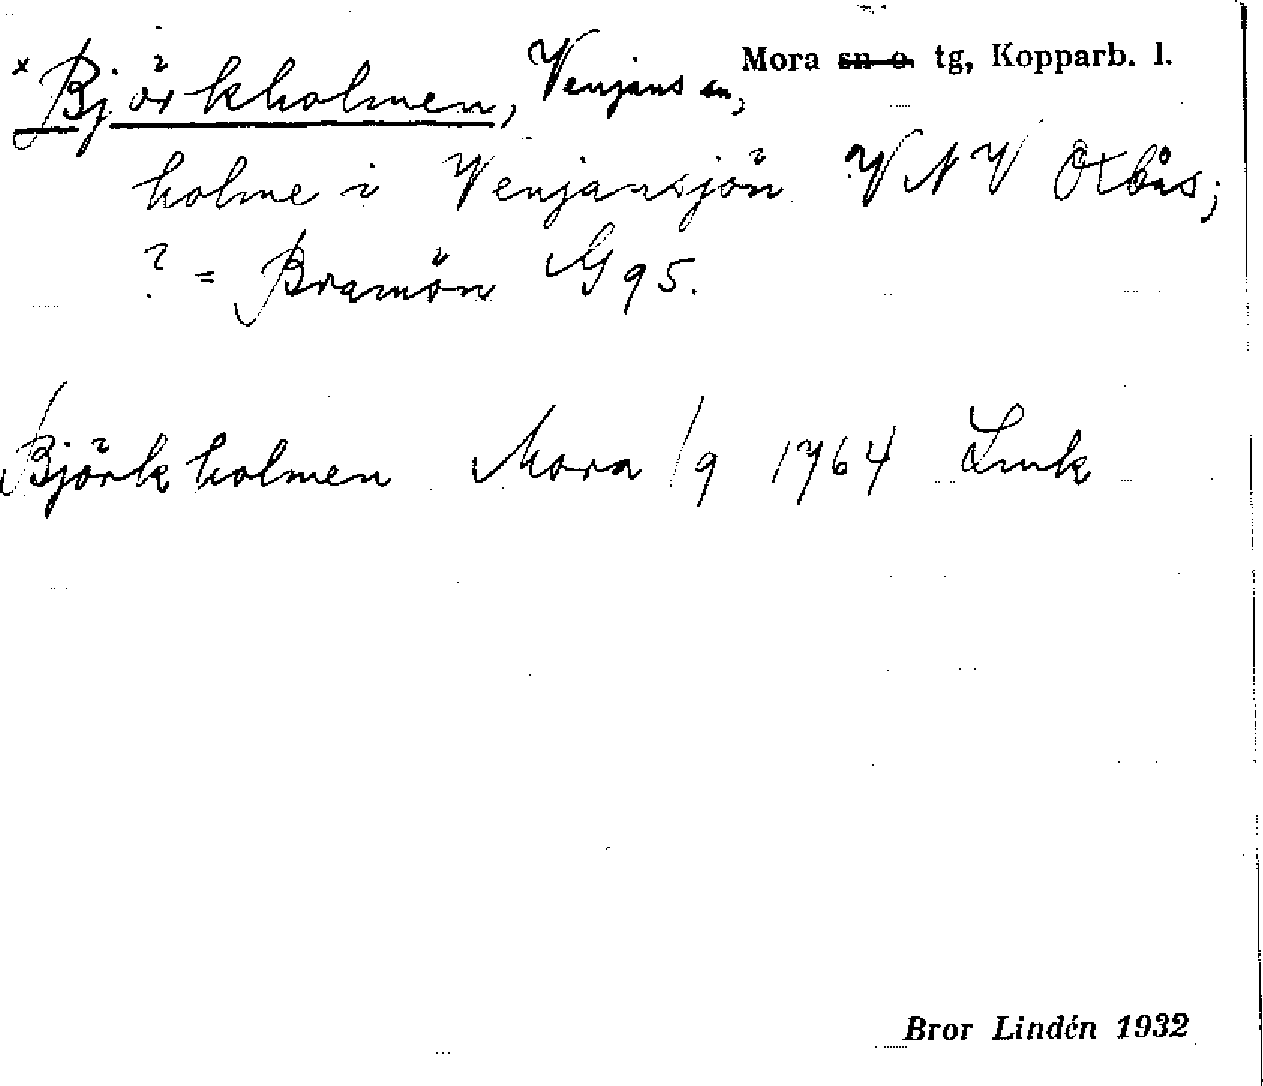 × Björkholmen, Venjans sn, Mora sn o. tg, Kopparb. l.
holme i Venjansjön VNV Oxbås;
? = Bramön G 95.
Björkholmen Mora 1/9 1764 Lmk
Bror Lindén 1932